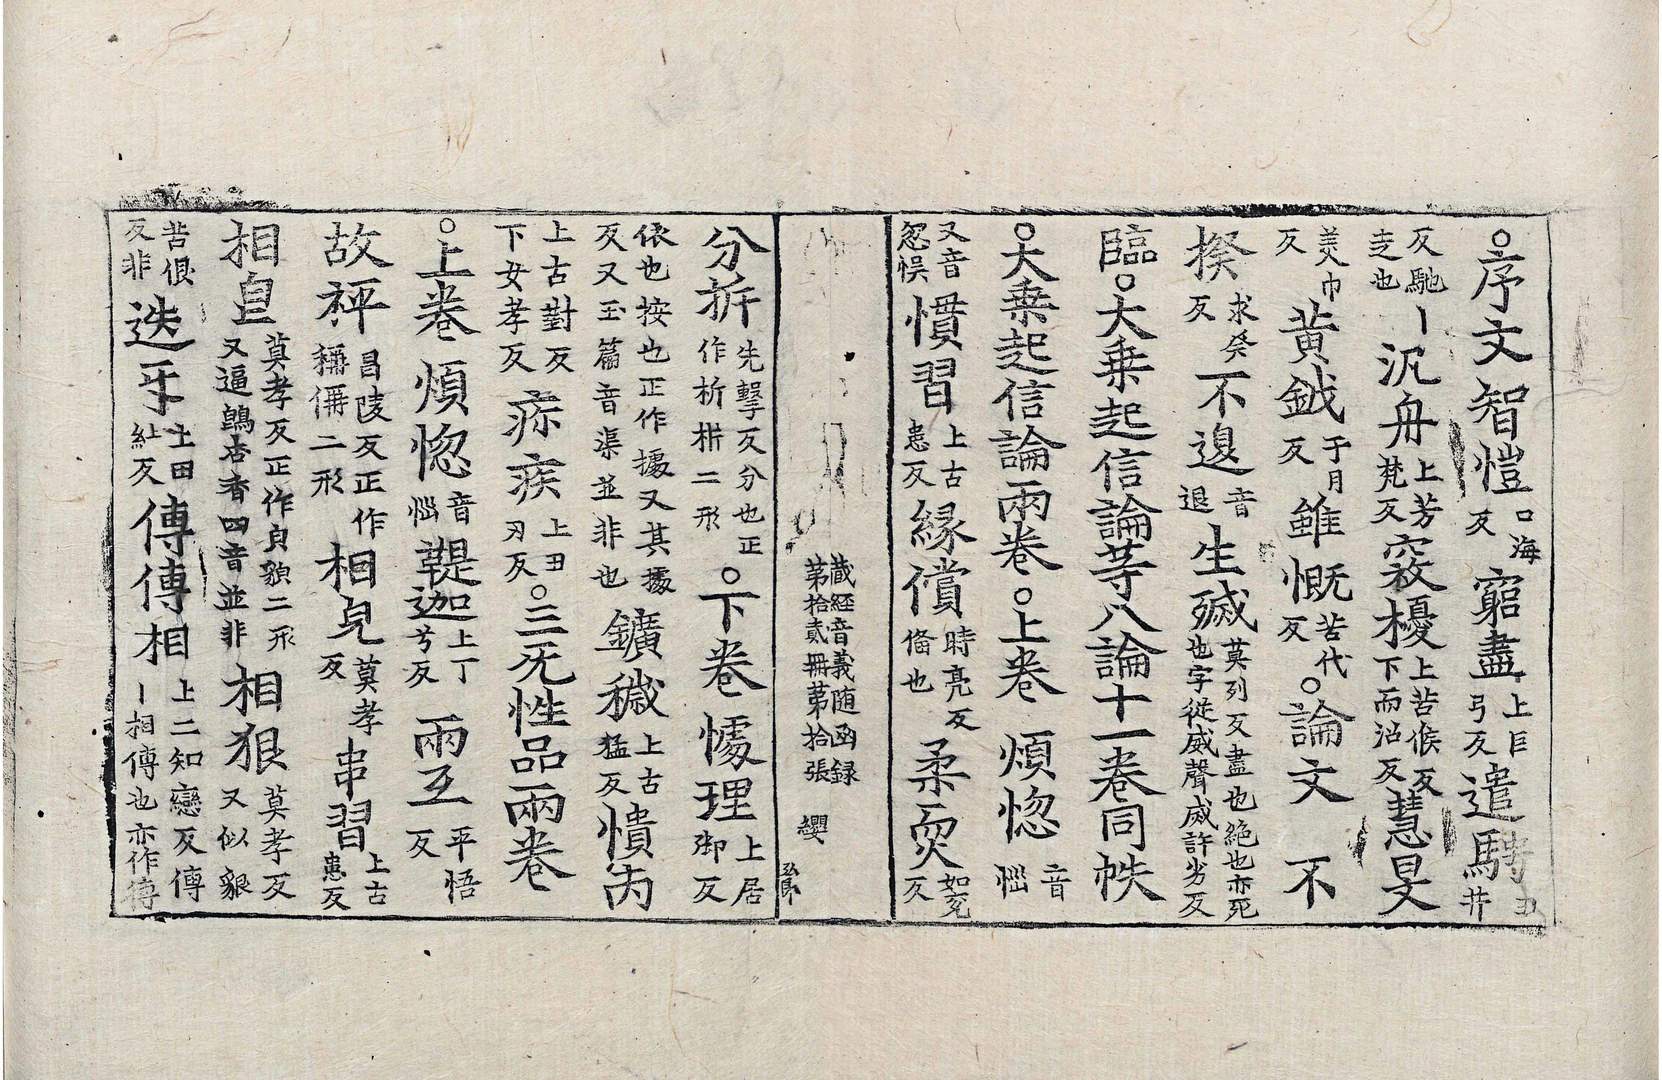 ○序文智愷口海反窮盡上巨弓反遣騁丑井
反馳丨走也沉舟上芳梵反寇擾上苦候反下而沼反慧旻
美巾反黃鉞于月反雖慨苦代反○論文不
揆求癸反不退音退生㓕莫列反盡也絕也亦死也字從烕聲烕許劣反
臨○大乗起信論䓁八論十一卷同帙
○大乗起信論兩卷○上卷煩惚音惱
又音忽悮慣習上古患反緣償時亮反俻也柔耎如兖反
藏經音義随函録第拾貳冊第拾張 纓
分折先擊反分也正作析㭊二形○下卷懅理上居御反
依也按也正作據又其據反又玉篇音渠並非也鑛穢上古猛反憒丙
上古對反下女孝反疢疾上丑刃反○三旡性品兩卷
○上卷煩惚音惱鞮迦上丁兮反兩互乎悟反
故秤昌陵反正作稱偁二形相皃莫孝反串習上古患反
相皀莫孝反正作皃貌二形又逼鵖杏香四音並非相狠莫孝反又似豤
苦佷反非迭牙上田紅反傳傳相上二知戀反傳丨相傳也亦作傳